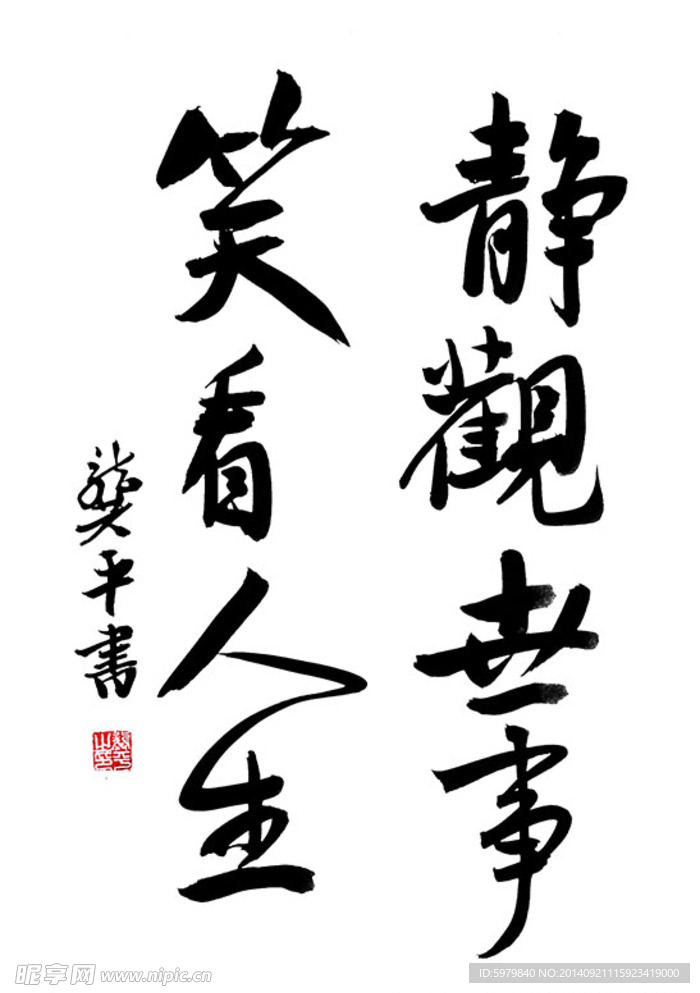 静觀世事
笑看人生
龔平書
昵享网 www.nipic.cn
ID:5979840 NO:20140921115923419000